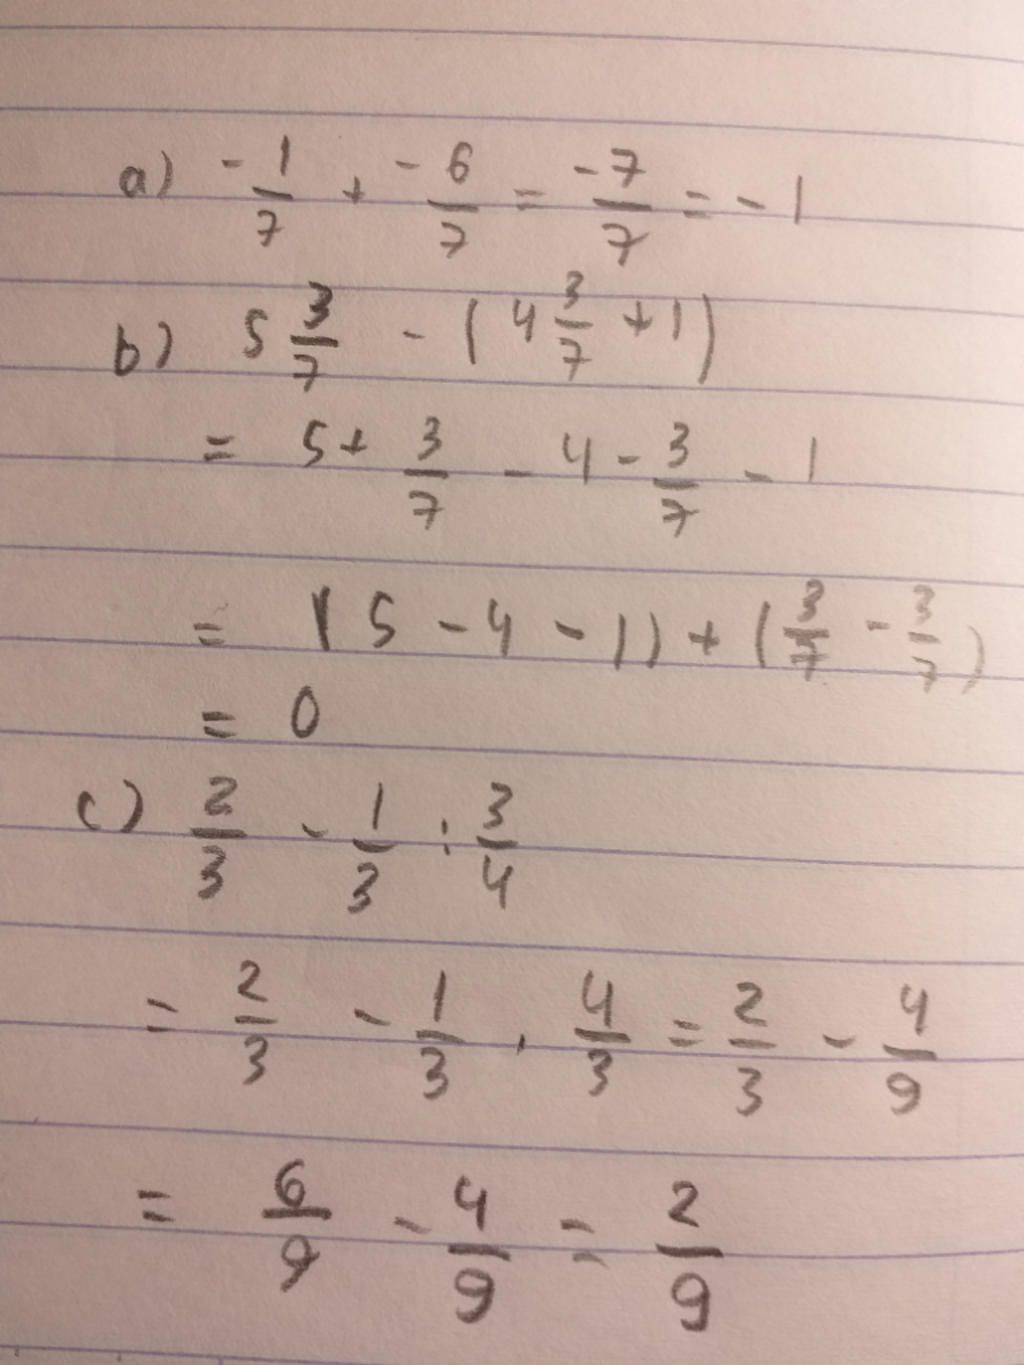 a) -1/7 + -6/7 = -7/7 = -1
b) 5 3/7 - (4 3/7 + 1)
= 5 + 3/7 - 4 - 3/7 - 1
= (5 - 4 - 1) + (3/7 - 3/7)
= 0
c) 2/3 - 1/3 : 3/4
= 2/3 - 1/3 . 4/3 = 2/3 - 4/9
= 6/9 - 4/9 = 2/9